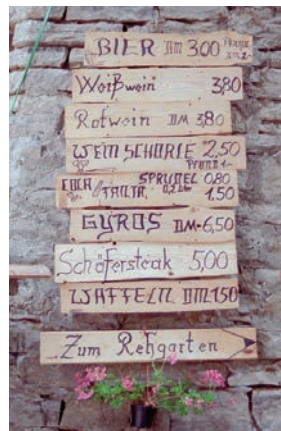 BIER DM 3,00 Pfand DM 2,-
Weißwein 3,80
Rotwein DM 3,80
WEINSCHORLE 2,50
Pfand 1.-
COCA / FANTA SPRUDEL 0,80
0,2 Ltr 1,50
GYROS DM 6,50
Schäfersteak 5,00
WAFFELN DM 1,50
Zum Rehgarten